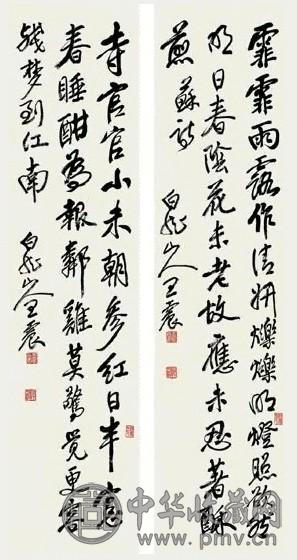 霏霏雨露作清妍爍爍明燈照欲然
明日春陰花未老故應未忍著酥
煎 蘇詩 白龍山人王震
寺官官小未朝參紅日半窗
春睡酣為報鄰雞莫驚覺更容
殘夢到江南 白龍山人王震
中华收藏网
www.pmv.cn